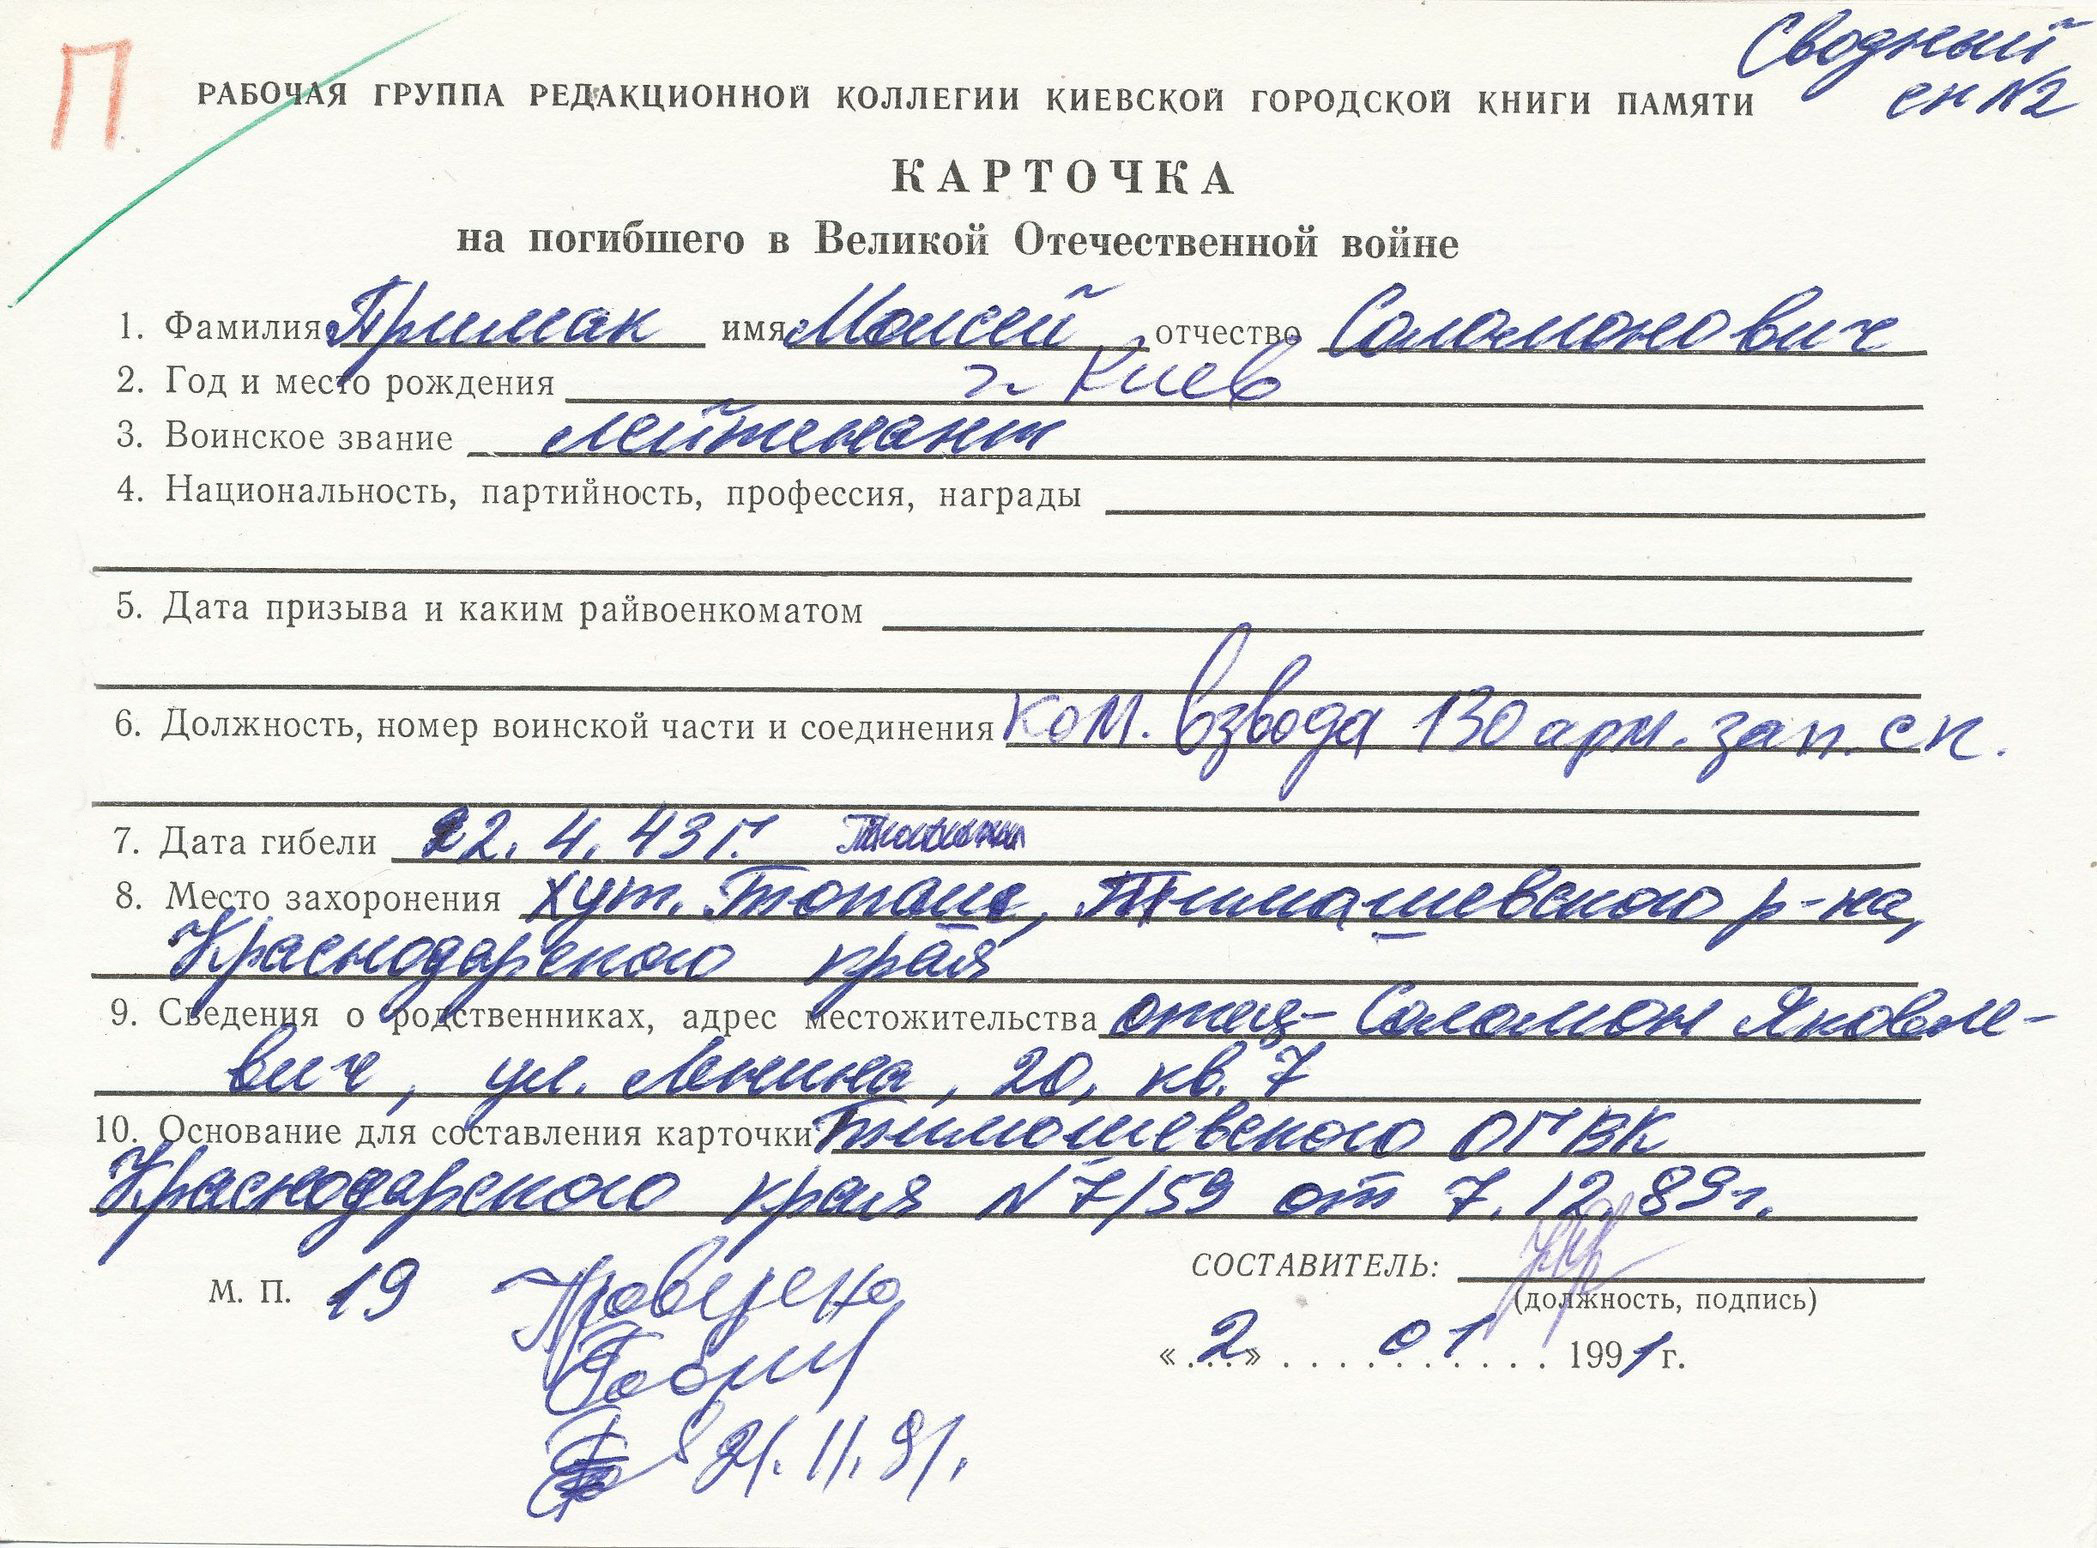 П
Сводный
сн №2
РАБОЧАЯ ГРУППА РЕДАКЦИОННОЙ КОЛЛЕГИИ КИЕВСКОЙ ГОРОДСКОЙ КНИГИ ПАМЯТИ
КАРТОЧКА
на погибшего в Великой Отечественной войне
1. Фамилия Примак имя Моисей отчество Соломонович
2. Год и место рождения г. Киев
3. Воинское звание лейтенант
4. Национальность, партийность, профессия, награды
5. Дата призыва и каким райвоенкоматом
6. Должность, номер воинской части и соединения ком. взвода 130 арм. зап. сп.
7. Дата гибели 22.4.43 г.
8. Место захоронения хут. Топали, Тимашевского р-на,
Краснодарского края
9. Сведения о родственниках, адрес местожительства отец - Соломон Яковле-
вич, ул. Ленина, 20, кв. 7
10. Основание для составления карточки Тимошевского ОГВК
Краснодарского края N 7/59 от 7.12.89 г.
М. П. 19 Проверено
СОСТАВИТЕЛЬ:
(должность, подпись)
«2» 01 1991 г.
21.11.91.